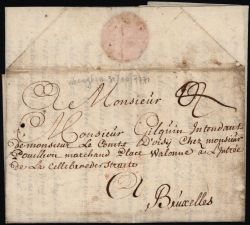 31/10/1771
A Monsieur
Monsieur Gilquin Intendant
de monsieur Le Comte D'oisy Chez monsieur
Pouillion marchand Place Walonne a L'intrée
de La Cellebroeder Straete
A
Bruxelles